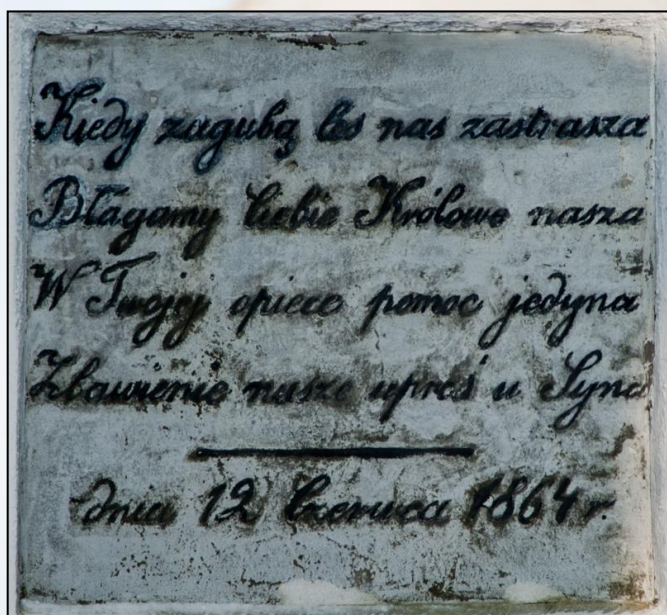 Kiedy zagubą los nas zastrasza
Błagamy Ciebie Królowo nasza
W Twojej opiece pomoc jedyna
Zbawienie nasze uproś u Syna
dnia 12 Czerwca 1864 r.